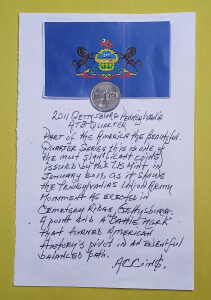 2011 GETTYSBURG PENNSYLVANIA
ATB QUARTER
PART OF THE AMERICA THE BEAUTIFUL
QUARTER SERIES THIS IS ONE OF
THE MOST SIGNIFICANT COINS
ISSUED BY THE US MINT, IN
JANUARY 2011, AS IT SHOWS
THE PENNSYLVANIA'S
MONUMENT AS ERECTED IN
CEMETERY RIDGE, GETTYSBURG.
A POINT AND A BATTLE MARK
THAT TURNED AMERICAN
HISTORY'S PIVOT IN AN EVENTFUL
BALANCED PATH.
AC COINS